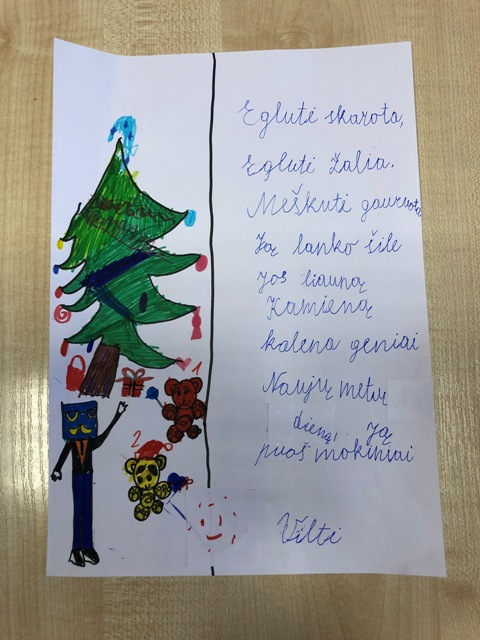 Eglutė skarota,
Eglutė žalia.
Meškutė gauruota
Ją lanko šile
Jos liauną
Kamieną
kalena geniai
Naujų metų
dieną, ją
puoš mokiniai
Viltė
1
2